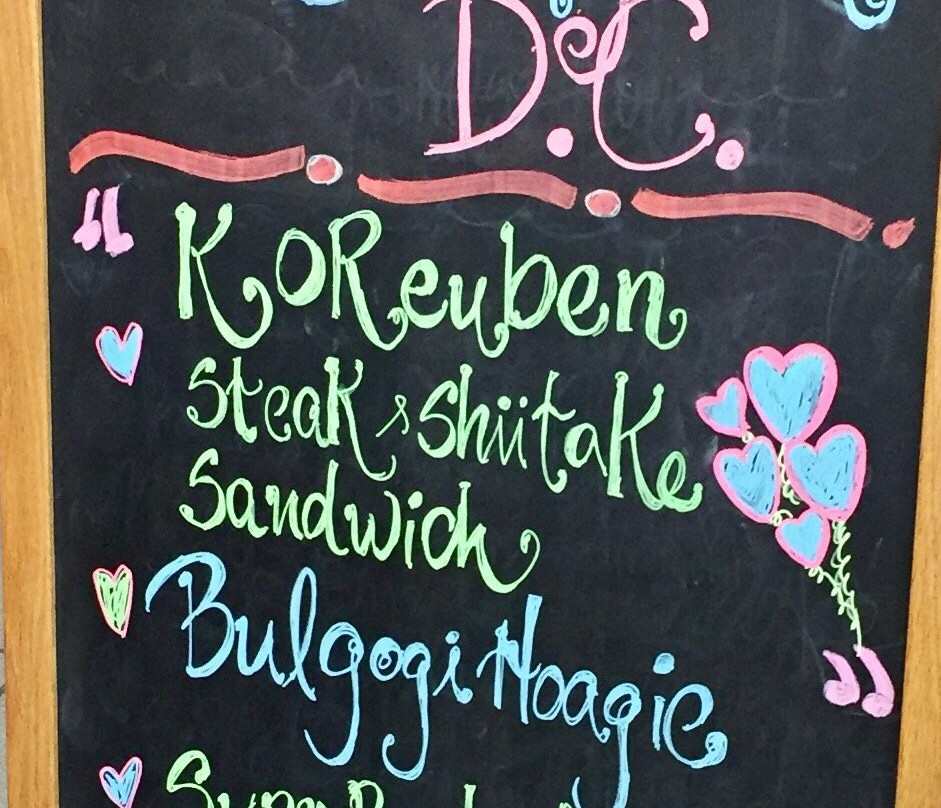 D.C.
"KOReuben
Steak & Shiitake
Sandwich
Bulgogi Hoagie"
Super